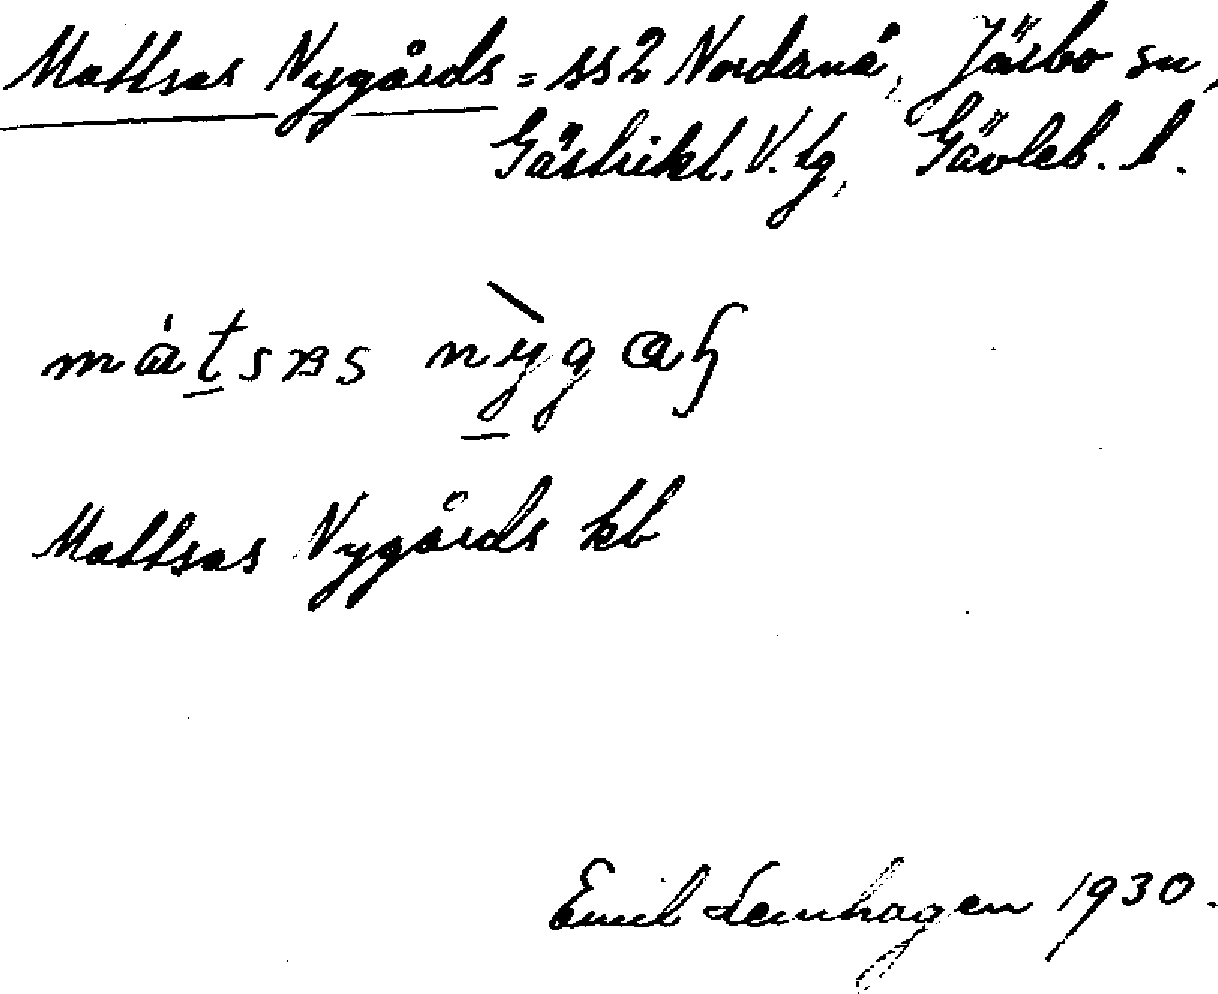 Mattsas Nygårds = ss2 Nordanå, Järbo sn,
Gästrikl. V. tg, Gävleb. l.
Mattsas Nygårds kb
Emil Lenhagen 1930.